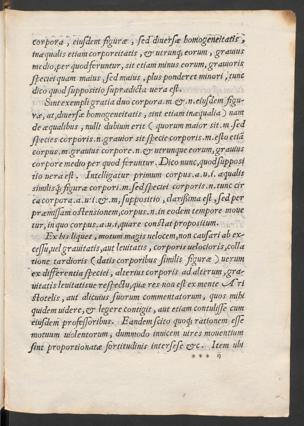 corpora, eiusdem figuræ, sed diuersæ homogeneitatis,
inæqualis etiam corporeitatis, & utrunq; eorum, grauius
medio, per quod feruntur, sit etiam minus eorum, grauioris
speciei quam maius, sed maius, plus ponderet minori, tunc
dico quod suppositio supradicta uera est.
Sint exempli gratia duo corpora .m. & .n. eiusdem figu-
ræ, at, diuersæ homogeneitatis, sint etiam inæqualia) nam
de æqualibus, nulli dubium erit (quorum maior sit .m. sed
species corporis .n. grauior sit specie corporis .m. esto etiã
corpus .m. grauius corpore .n. & utrunque eorum, grauius
corpore medio per quod feruntur. Dico nunc, quod supposi
tio uera est. Intelligatur primum corpus .a.u.l. æqualis
similisq; figuræ corpori .m. sed speciei corporis .n. tunc cir
ca corpora .a.u.l. & .m. suppositio, clarissima est, sed per
præmissam ostensionem, corpus .n. in eodem tempore moue
tur, in quo corpus .a.u.l. quare constat propositum.
Ex his liquet, motum magis uelocem, non causari ab ex-
cessu, uel grauitatis, aut leuitatis, corporis uelocioris, colla
tione tardioris (datis corporibus similis figuræ) uerum
ex differentia speciei, alterius corporis ad alterum, gra-
uitatis leuitatisue respectu, quæ res non est ex mente Ari
stotelis, aut alicuius suorum commentatorum, quos mihi
quidem uidere, & legere contigit, aut etiam contulisse cum
eiusdem professoribus. Eandem scito quoq; rationem esse
motuum uiolentorum, dummodo inuicem uires mouentium
sint proportionatæ fortitudinis intersese &c. Item ubi
*** ij